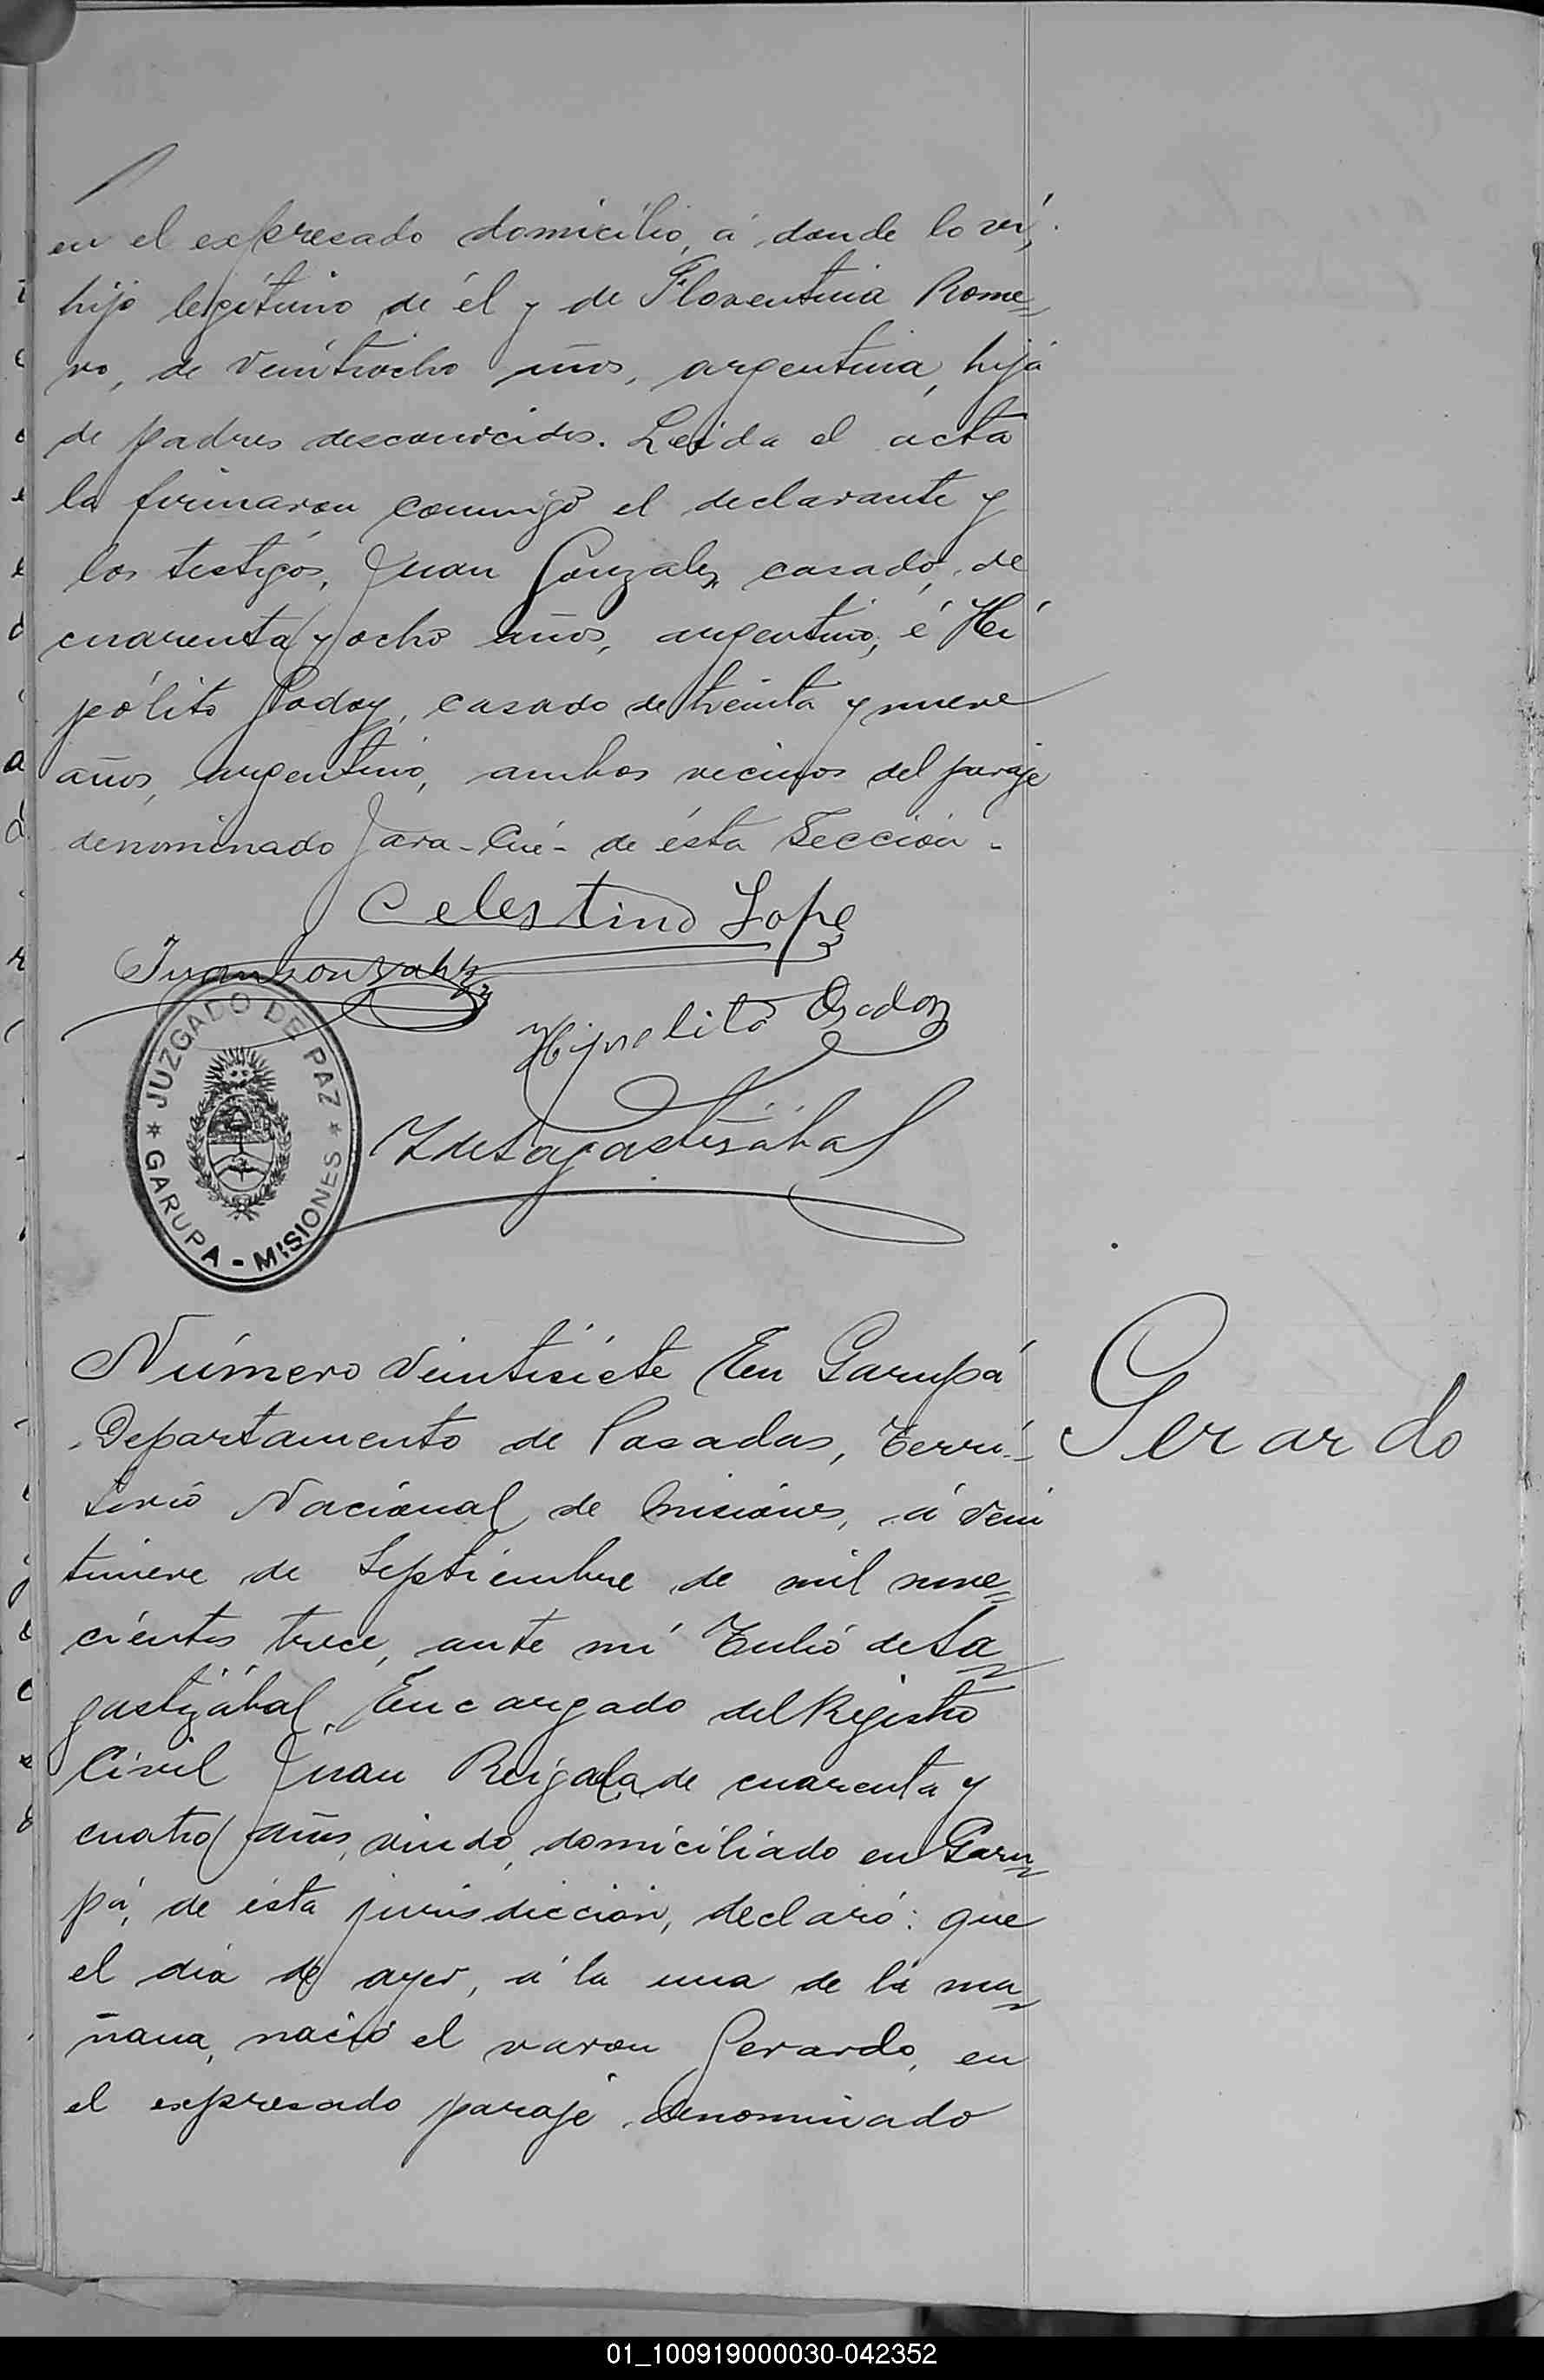 en el expresado domicilio, á donde lo ví,
hijo legítimo de él y de Florentina Rome=
ro, de veintiocho años, argentina, hija
de padres desconocidos. Leida el acta
la firmaron conmigo el declarante y
los testigos, Juan Gonzalez, casado, de
cuarenta y ocho años, argentino, é Hi
pólito Godoy, casado de treinta y nueve
años, argentino, ambos vecinos del paraje
denominado Jara-Cué- de ésta Sección.
Celestino Lopez
Juan Gonzalez
Hipolito
JUZGADO DE PAZ
* GARUPA - MISIONES *
T de Lagastizábal
Número veintisiete En Garupá
Departamento de Posadas, Terri=
torio Nacional de Misiones, á vein
tinueve de Septiembre de mil nove=
cientos trece, ante mí Tulio de La=
gastizábal, Encargado del Registro
Civil Juan Reigala de cuarenta y
cuatro años, viudo, domiciliado en Garu=
pá, de ésta jurisdicción, declaró: que
el día de ayer, á la una de la ma=
ñana, nació el varon Gerardo, en
el expresado paraje denominado
Gerardo
01_100919000030-042352